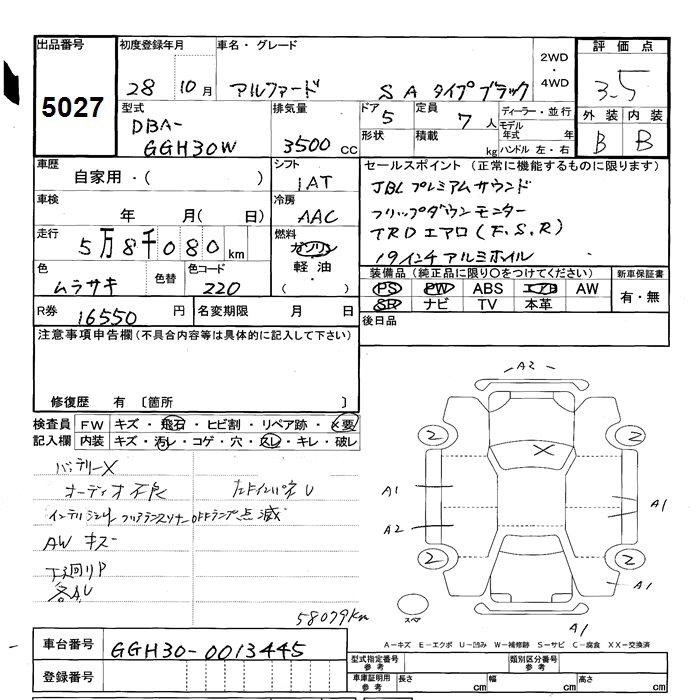 出品番号 初度登録年月 車名・グレード 2WD・4WD 評価点
5027 28 10月 アルファード SA タイプブラック 3.5
型式 排気量 ドア 定員 ディーラー・並行 外装 内装
DBA- GGH30W 3500 CC 5 7人 モデル年式 年 B B
形状 積載 kg ハンドル 左・右
車歴 シフト セールスポイント (正常に機能するものに限ります)
自家用・( ) IAT JBL プレミアムサウンド
車検 冷房 フリップダウンモニター
年 月( 日) AAC TRD エアロ (F.S.R)
走行 燃料 19インチアルミホイル
5万8千080km ガソリン 軽油・( )
色 色替 色コード 装備品 (純正品に限り○をつけてください) 新車保証書
ムラサキ 220 PS PW ABS エアB AW 有・無
SR ナビ TV 本革
R券 16550円 名変期限 月 日 後日品
注意事項申告欄 (不具合内容等は具体的に記入して下さい)
修復歴 有 〔箇所 〕
検査員 FW キズ・飛石・ヒビ割・リペア跡・×要
記入欄 内装 キズ・汚レ・コゲ・穴・スレ・キレ・破レ
バッテリーX
オーディオ不良
OFFランプ点滅
AW キズ
下廻りP
各A,U
58079km
A2
2 2
A1 A1
A2
2 2
A1
スペア A1
A-キズ E-エクボ U-凹み W-補修跡 S-サビ C-腐食 XX-交換済
車台番号 GGH30-0013445
型式指定番号 参考 類別区分番号 参考
登録番号
車庫証明用 参考 長さ cm 幅 cm 高さ cm